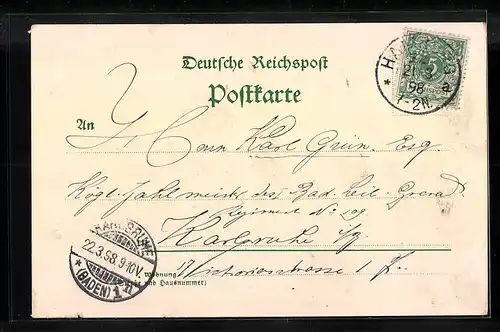 Deutsche Reichspost
Postkarte
An
Herrn Karl Grün, Esq.
Kgl. Zahlmeister des Bad. Leib. Grenad.
Regiment No 109
Karlsruhe i/B
Wohnung
Victoriastrasse 1
(Straße und Hausnummer)
21 3
98
7-2N.
5
KARLSRUHE
22.3.98.9-10V.
(BADEN) 1